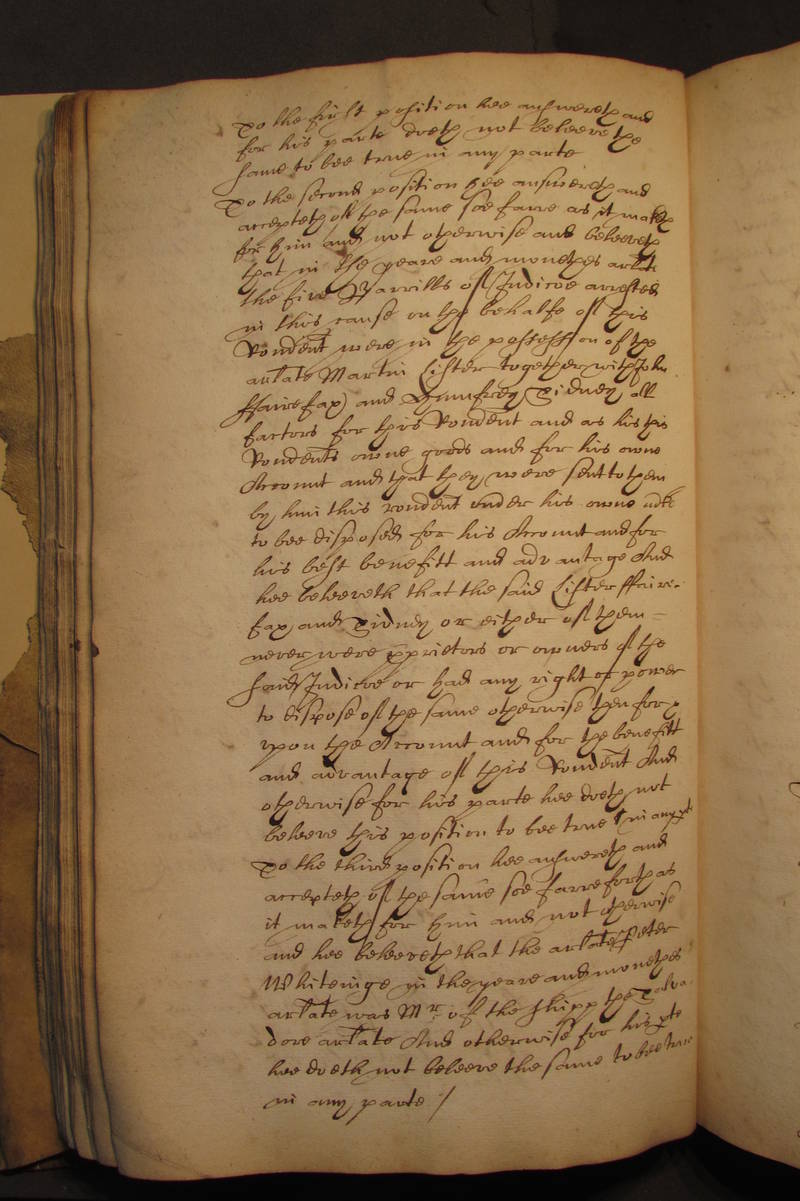 To the first position hee answereth and
for his parte doeth not beleeve the
same to bee true in any parte
To the second position hee answereth and
accepteth of the same soe farre as it maketh
for him and not otherwise and beleeveth
that in the yeare and monethes arlate
the five Barrills of Indicoe arrested
in this cause on the behalfe of this
Rondent were in the possession of the
arlate Martin Lister together with John
ffairefax and Humfrey Sidney all
factors for this Rondent and as his this
Rondents owne goods and for his owne
Account and that they were sent to them
by him this rondent under his owne
to bee disposed for his Account and for
his best benefitt and advantage And
hee beleeveth that the said Lister ffaire-
fax and Sidney or either of them
never were pprietors or owners of the
said Indicoe or had any right or power
to dispose of the same otherwise then for &
upon the Account and for the benefitt
and advantage of this Rondent And
otherwise for his parte hee doeth not
beleeve this position to bee true in any pte
To the third position hee answereth and
accepteth of the same soe farre forth as
it maketh for him and not otherwise
and hee beleeveth that the arlate Peter
Whiteinge in the yeare and monethes
arlate was Mr. of the shipp the Salva-
dore arlate And otherwise for his pte
hee doeth not beleeve the same to bee true
in any parte /